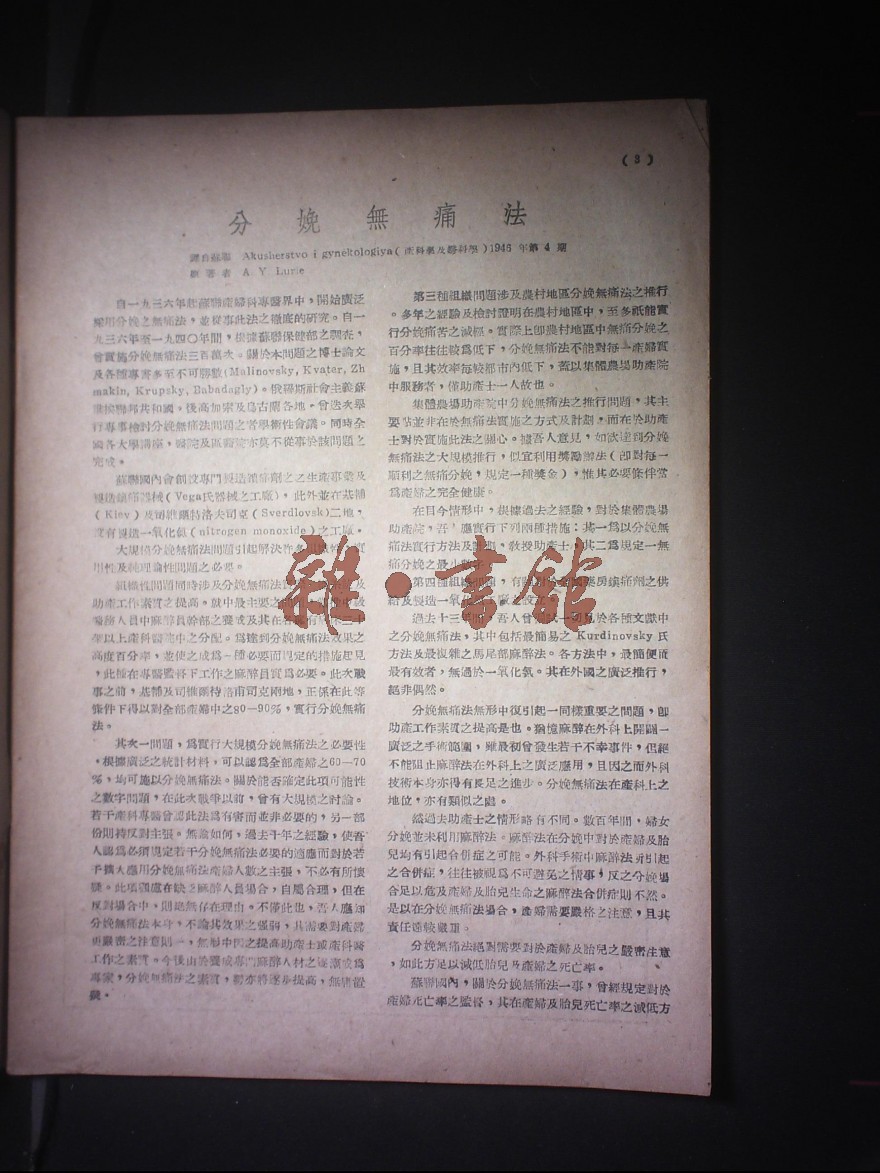 (3)
分娩無痛法
譯自蘇聯 Akusherstvo i gynekologiya(產科學及婦科學)1946年第4期
原著者 A. Y Lurie
自一九三六年起蘇聯產婦科專醫界中,開始廣泛
採用分娩之無痛法,並從事此法之徹底的研究。自一
九三六年至一九四〇年間,根據蘇聯保健部之調查,
曾實施分娩無痛法三百萬次。關於本問題之博士論文
及各種專書多至不可勝數(Malinovsky, Kvater, Zh
makin, Krupsky, Babadagly)。俄羅斯社會主義蘇
維埃聯邦共和國,後高加索及烏克蘭各地,曾迭次舉
行專事檢討分娩無痛法問題之學術性會議。同時全
國各大學講座,醫院及區醫院亦莫不從事於該問題之
完成。
蘇聯國內會創設專門製造鎮痛劑之工生產事業及
製造鎮痛器械(Vega氏器械之工廠),此外並在基輔
(Kiev)及司維爾特洛夫司克(Sverdlovsk)二地,
設有製造一氧化氮(nitrogen monoxide)之工廠。
大規模分娩無痛法問題引起解決許多組織性,實
用性及純理論性問題之必要。
組織性問題同時涉及分娩無痛法
助產工作素質之提高。就中最主要之
醫務人員中麻醉員幹部之養成及其在
年以上產科醫院中之分配。爲達到分娩無痛法效果之
高度百分率,並使之成爲一種必要而規定的措施起見
,此種在專醫監督下工作之麻醉員實爲必要。此次戰
事之前,基輔及司維爾特洛甫司克兩地,正係在此等
條件下得以對全部產婦中之80—90%,實行分娩無痛
法。
其次一問題,爲實行大規模分娩無痛法之必要性
。根據廣泛之統計材料,可以認爲全部產婦之60—70
%,均可施以分娩無痛法。關於能否確定此項可能性
之數字問題,在此次戰爭以前,曾有大規模之討論。
若干產科專醫曾認此法爲有害而並非必要的,另一部
份則持反對主張。無論如何,過去十年之經驗,使吾
人認爲必須規定若干分娩無痛法必要的適應而對於若
干擴大應用分娩無痛法產婦人數之主張,不必有所懷
疑。此項顧慮在缺乏麻醉人員場合,自屬合理,但在
反對場合中,則絕無存在理由。不僅此也,吾人應知
分娩無痛法本身,不論其效果之強弱,其需要對產婦
更嚴密之注意則一,無形中因之提高助產士或產科醫
工作之素質。今後由於養成專門麻醉人材之逐漸成爲
專家,分娩無痛法之素質,勢亦將逐步提高,無庸置
疑。
第三種組織問題涉及農村地區分娩無痛法之推行
。多年之經驗及檢討證明在農村地區中,至多祇能實
行分娩痛苦之減輕。實際上卽農村地區中無痛分娩之
百分率往往較爲低下,分娩無痛法不能對每一產婦實
施,且其效率每較都市內低下,蓋以集體農場助產院
中服務者,僅助產士一人故也。
集體農場助產院中分娩無痛法之推行問題,其主
要點並非在於無痛法實施之方式及計劃,而在於助產
士對於實施此法之關心。據吾人意見,如欲達到分娩
無痛法之大規模推行,似宜利用獎勵辦法(卽對每一
順利之無痛分娩,規定一種獎金),惟其必要條件當
爲產婦之完全健康。
在目今情形中,根據過去之經驗,對於集體農場
助產院,吾人應實行下列兩種措施:其一爲以分娩無
痛法實行方法及計劃,教授助產士,其二爲規定一無
痛分娩之最少數字。
第四種組織問題,有關對於全國藥房鎮痛劑之供
給及製造一氧化氮工廠之設立。
過去十三年間,吾人曾試用一切見於各種文獻中
之分娩無痛法,其中包括最簡易之 Kurdinovsky 氏
方法及最複雜之馬尾部麻醉法。各方法中,最簡便而
最有效者,無過於一氧化氮。其在外國之廣泛推行,
絕非偶然。
分娩無痛法無形中復引起一同樣重要之問題,卽
助產工作素質之提高是也。猶憶麻醉在外科上開闢一
廣泛之手術範圍,雖最初曾發生若干不幸事件,但絕
不能阻止麻醉法在外科上之廣泛應用,且因之而外科
技術本身亦得有長足之進步。分娩無痛法在產科上之
地位,亦有類似之處。
惟過去助產士之情形略有不同。數百年間,婦女
分娩並未利用麻醉法。麻醉法在分娩中對於產婦及胎
兒均有引起合併症之可能。外科手術中麻醉法所引起
之合併症,往往被視爲不可避免之情事,反之分娩場
合足以危及產婦及胎兒生命之麻醉法合併症則不然。
是以在分娩無痛法場合,產婦需要嚴格之注意,且其
責任遠較嚴重。
分娩無痛法絕對需要對於產婦及胎兒之嚴密注意
,如此方足以減低胎兒及產婦之死亡率。
蘇聯國內,關於分娩無痛法一事,曾經規定對於
產婦死亡率之監督,其在產婦及胎兒死亡率之減低方
雜·書館